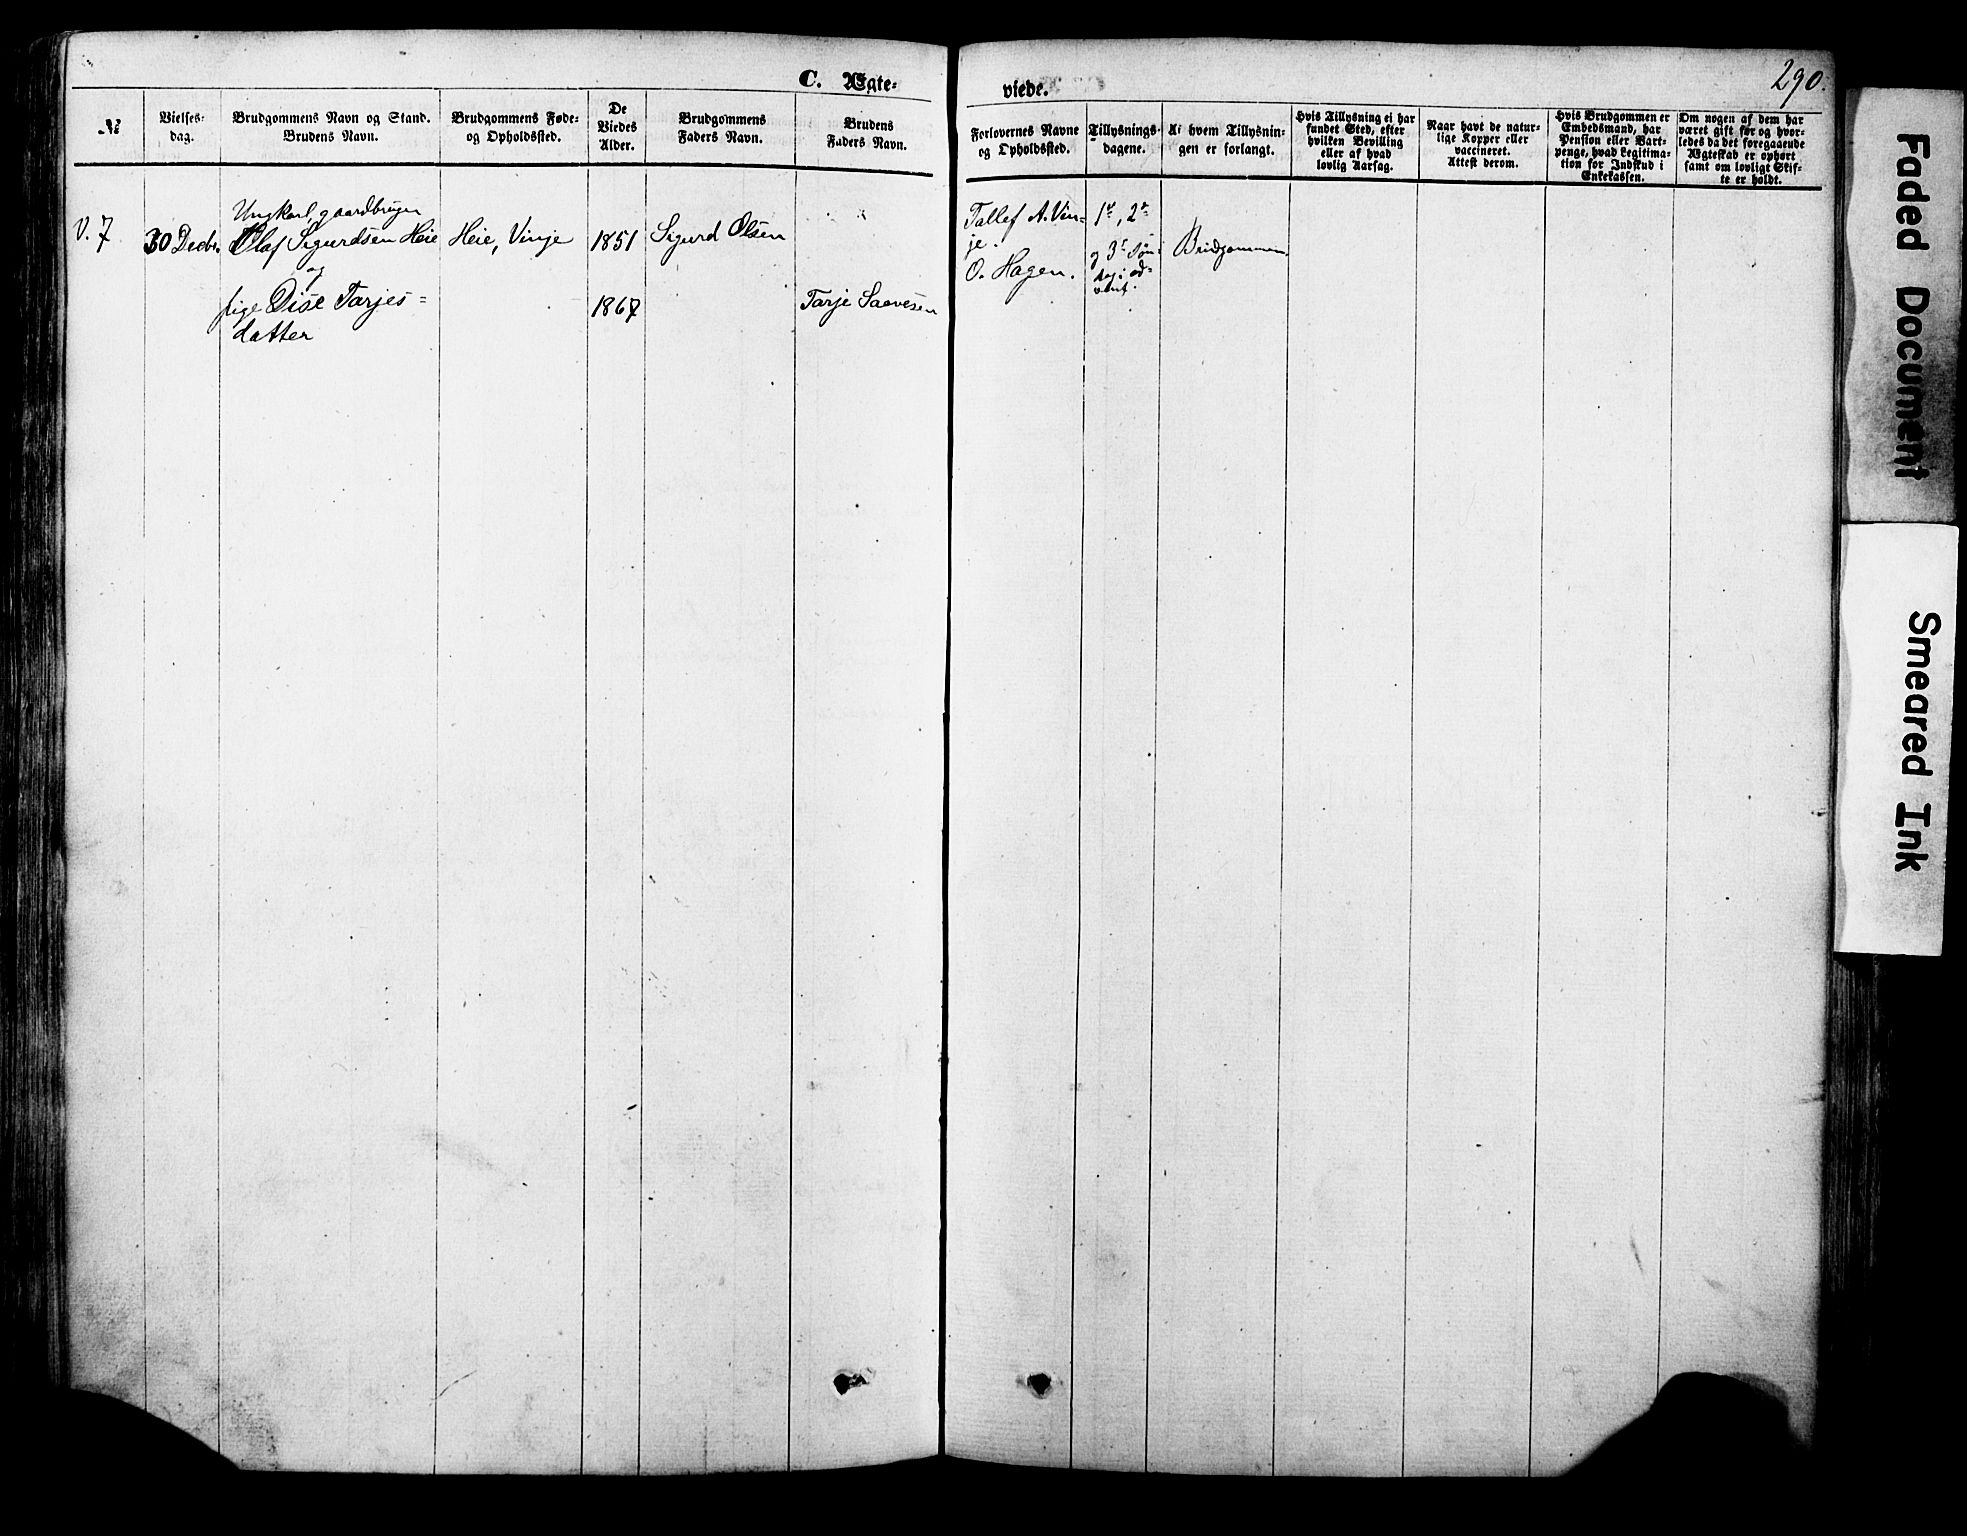 C. Ægte-
viede.
290.
№
Vielses-
dag.
Brudgommens Navn og Stand.
Brudens Navn.
Brudgommens Føde-
og Opholdssted.
De
Viedes
Alder.
Brudgommens
Faders Navn.
Brudens
Faders Navn.
Forlovernes Navne
og Opholdssted.
Tillysnings-
dagene.
Af hvem Tillysnin-
gen er forlangt.
Hvis Tillysning ei har
fundet Sted, efter
hvilken Bevilling
eller af hvad
lovlig Aarsag.
Naar havt de natur-
lige Kopper eller
vaccineret.
Attest derom.
Hvis Brudgommen er
Embedsmand, har
Pension eller Vart-
penge, hvad Legitima-
tion for Indskud i
Enkekassen.
Om nogen af dem har
været gift før og hvor-
ledes da det foregaaende
Ægteskab er ophørt
samt om lovligt Skif-
te er holdt.
V. 7
30 Decbr.
Ungkarl, gaardbruger
Olaf Sigurdsen Heie
og
pige Dise Tarjes=
datter
Heie, Vinje
1851
1867
Sigurd Olsen
Tarje Saavesen
Tallef A. Vin=
je.
O. Hagen.
1ste, 2den
og 3die Søn-
dag i ad=
vent.
Brudgommen
Faded Document
Smeared Ink